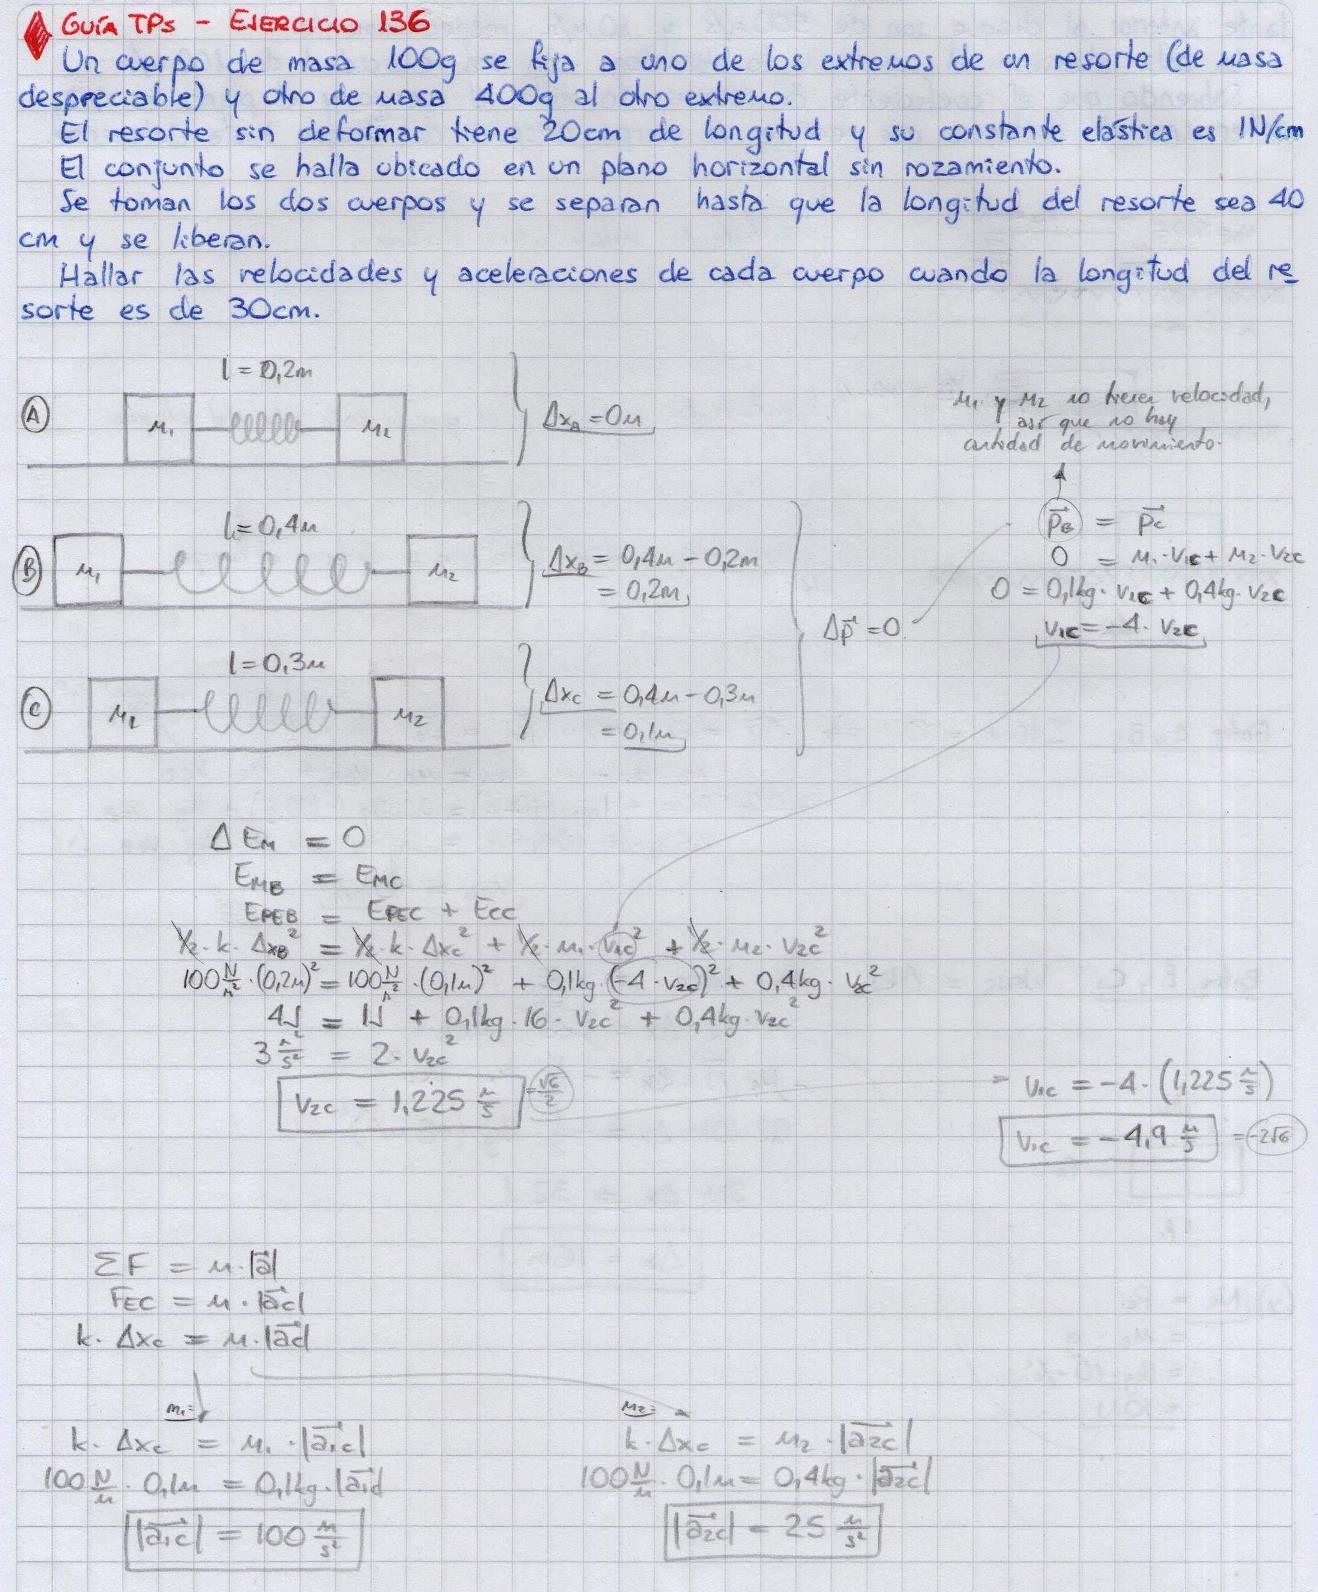 GUÍA TPs - EJERCICIO 136
Un cuerpo de masa 100g se fija a uno de los extremos de un resorte (de masa
despreciable) y otro de masa 400g al otro extremo.
El resorte sin deformar tiene 20cm de longitud y su constante elástica es 1N/cm
El conjunto se halla ubicado en un plano horizontal sin rozamiento.
Se toman los dos cuerpos y se separan hasta que la longitud del resorte sea 40
cm y se liberan.
Hallar las velocidades y aceleraciones de cada cuerpo cuando la longitud del re
sorte es de 30cm.
l = 0,2m
A M1 M2 ΔxA = 0m
l = 0,4m
B M1 M2 ΔxB = 0,4m - 0,2m
= 0,2m
l = 0,3m
C M1 M2 ΔxC = 0,4m - 0,3m
= 0,1m
Δp⃗ = 0
M1 y M2 no tienen velocidad,
así que no hay
cantidad de movimiento.
p⃗B = p⃗C
0 = M1·V1C + M2·V2C
0 = 0,1kg·V1C + 0,4kg·V2C
V1C = -4·V2C
ΔEM = 0
EMB = EMC
EPEB = EPEC + ECC
1/2·k·ΔxB² = 1/2·k·ΔxC² + 1/2·M1·V1C² + 1/2·M2·V2C²
100 N/m²·(0,2m)² = 100 N/m²·(0,1m)² + 0,1kg·(-4·V2C)² + 0,4kg·V2C²
4J = 1J + 0,1kg·16·V2C² + 0,4kg·V2C²
3 m²/s² = 2·V2C²
V2C = 1,225 m/s = √6/2
V1C = -4·(1,225 m/s)
V1C = -4,9 m/s = -2√6
ΣF = M·|a⃗|
FEC = M·|a⃗C|
k·ΔxC = M·|a⃗C|
M1=
k·ΔxC = M1·|a⃗1C|
100 N/m·0,1m = 0,1kg·|a⃗1C|
|a⃗1C| = 100 m/s²
M2=
k·ΔxC = M2·|a⃗2C|
100 N/m·0,1m = 0,4kg·|a⃗2C|
|a⃗2C| = 25 m/s²